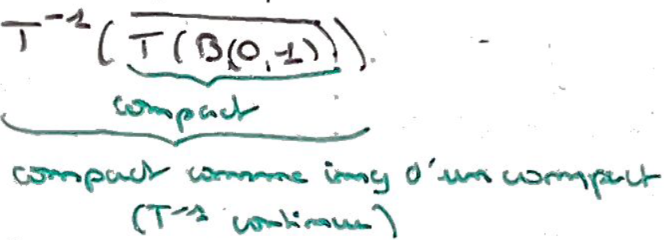 T⁻¹(\overline{T(B(0,1))}).
compact
compact comme img d'un compact
(T⁻¹ continue)